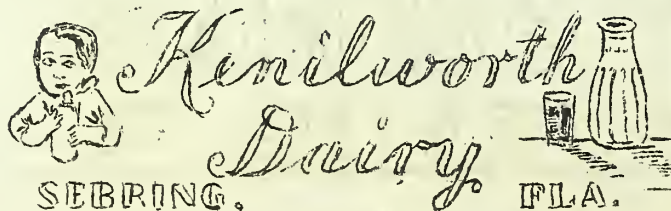 Kenilworth
Dairy
SEBRING. FLA.